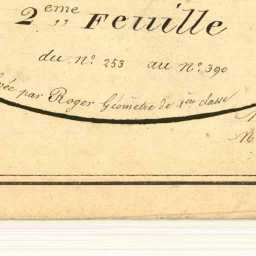 2 eme Feuille
du n.° 253 au n.° 390
par Roger Géomètre de 1ere classe